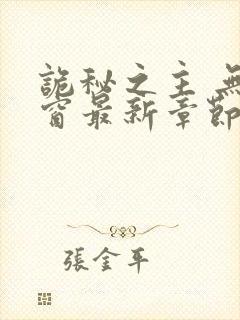 詭秘之主 無
窗最新章節
張金平